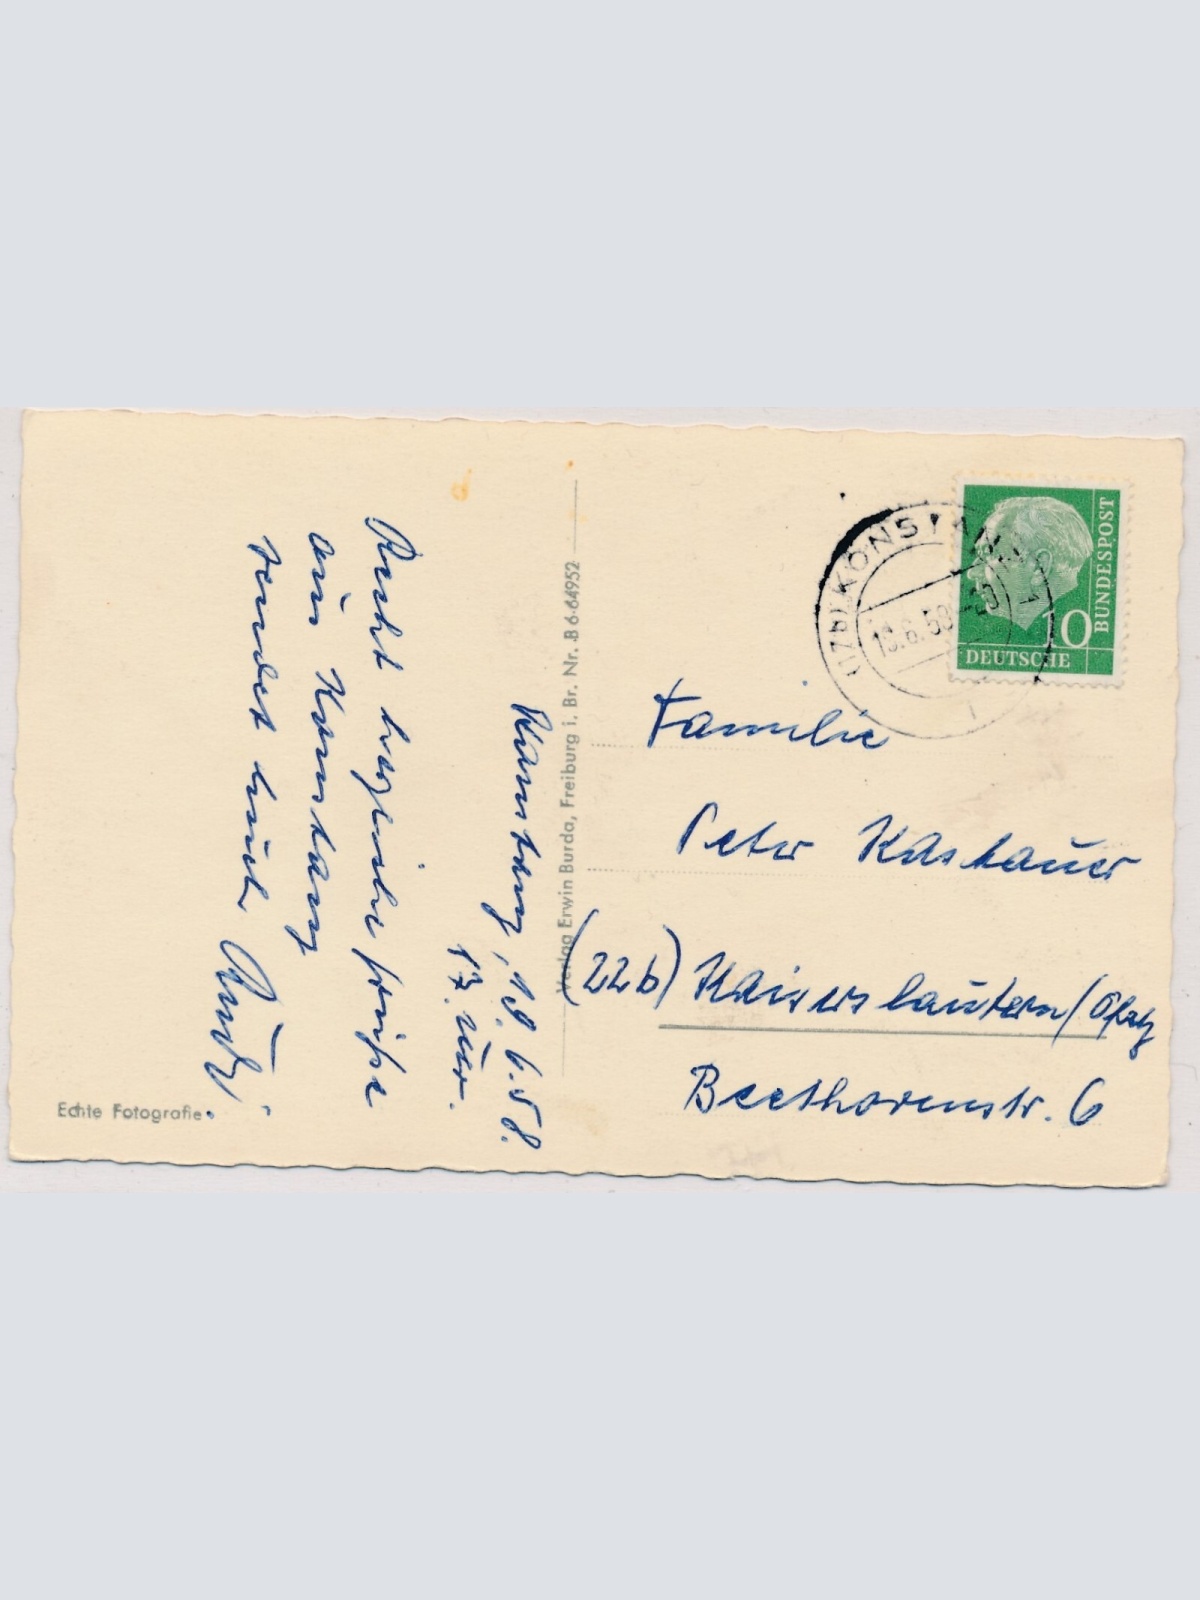 Konstanz, 19.6.58.
17. Uhr.
Recht herzliche Grüße
aus Konstanz
sendet Euch
Echte Fotografie
Verlag Erwin Burda, Freiburg i. Br. Nr. B 6-64952
(17b) KONSTANZ
6.58-20
10
DEUTSCHE
BUNDESPOST
Familie
Peter Kastauer
(22b) Kaiserslautern/Pfalz
Beethovenstr. 6